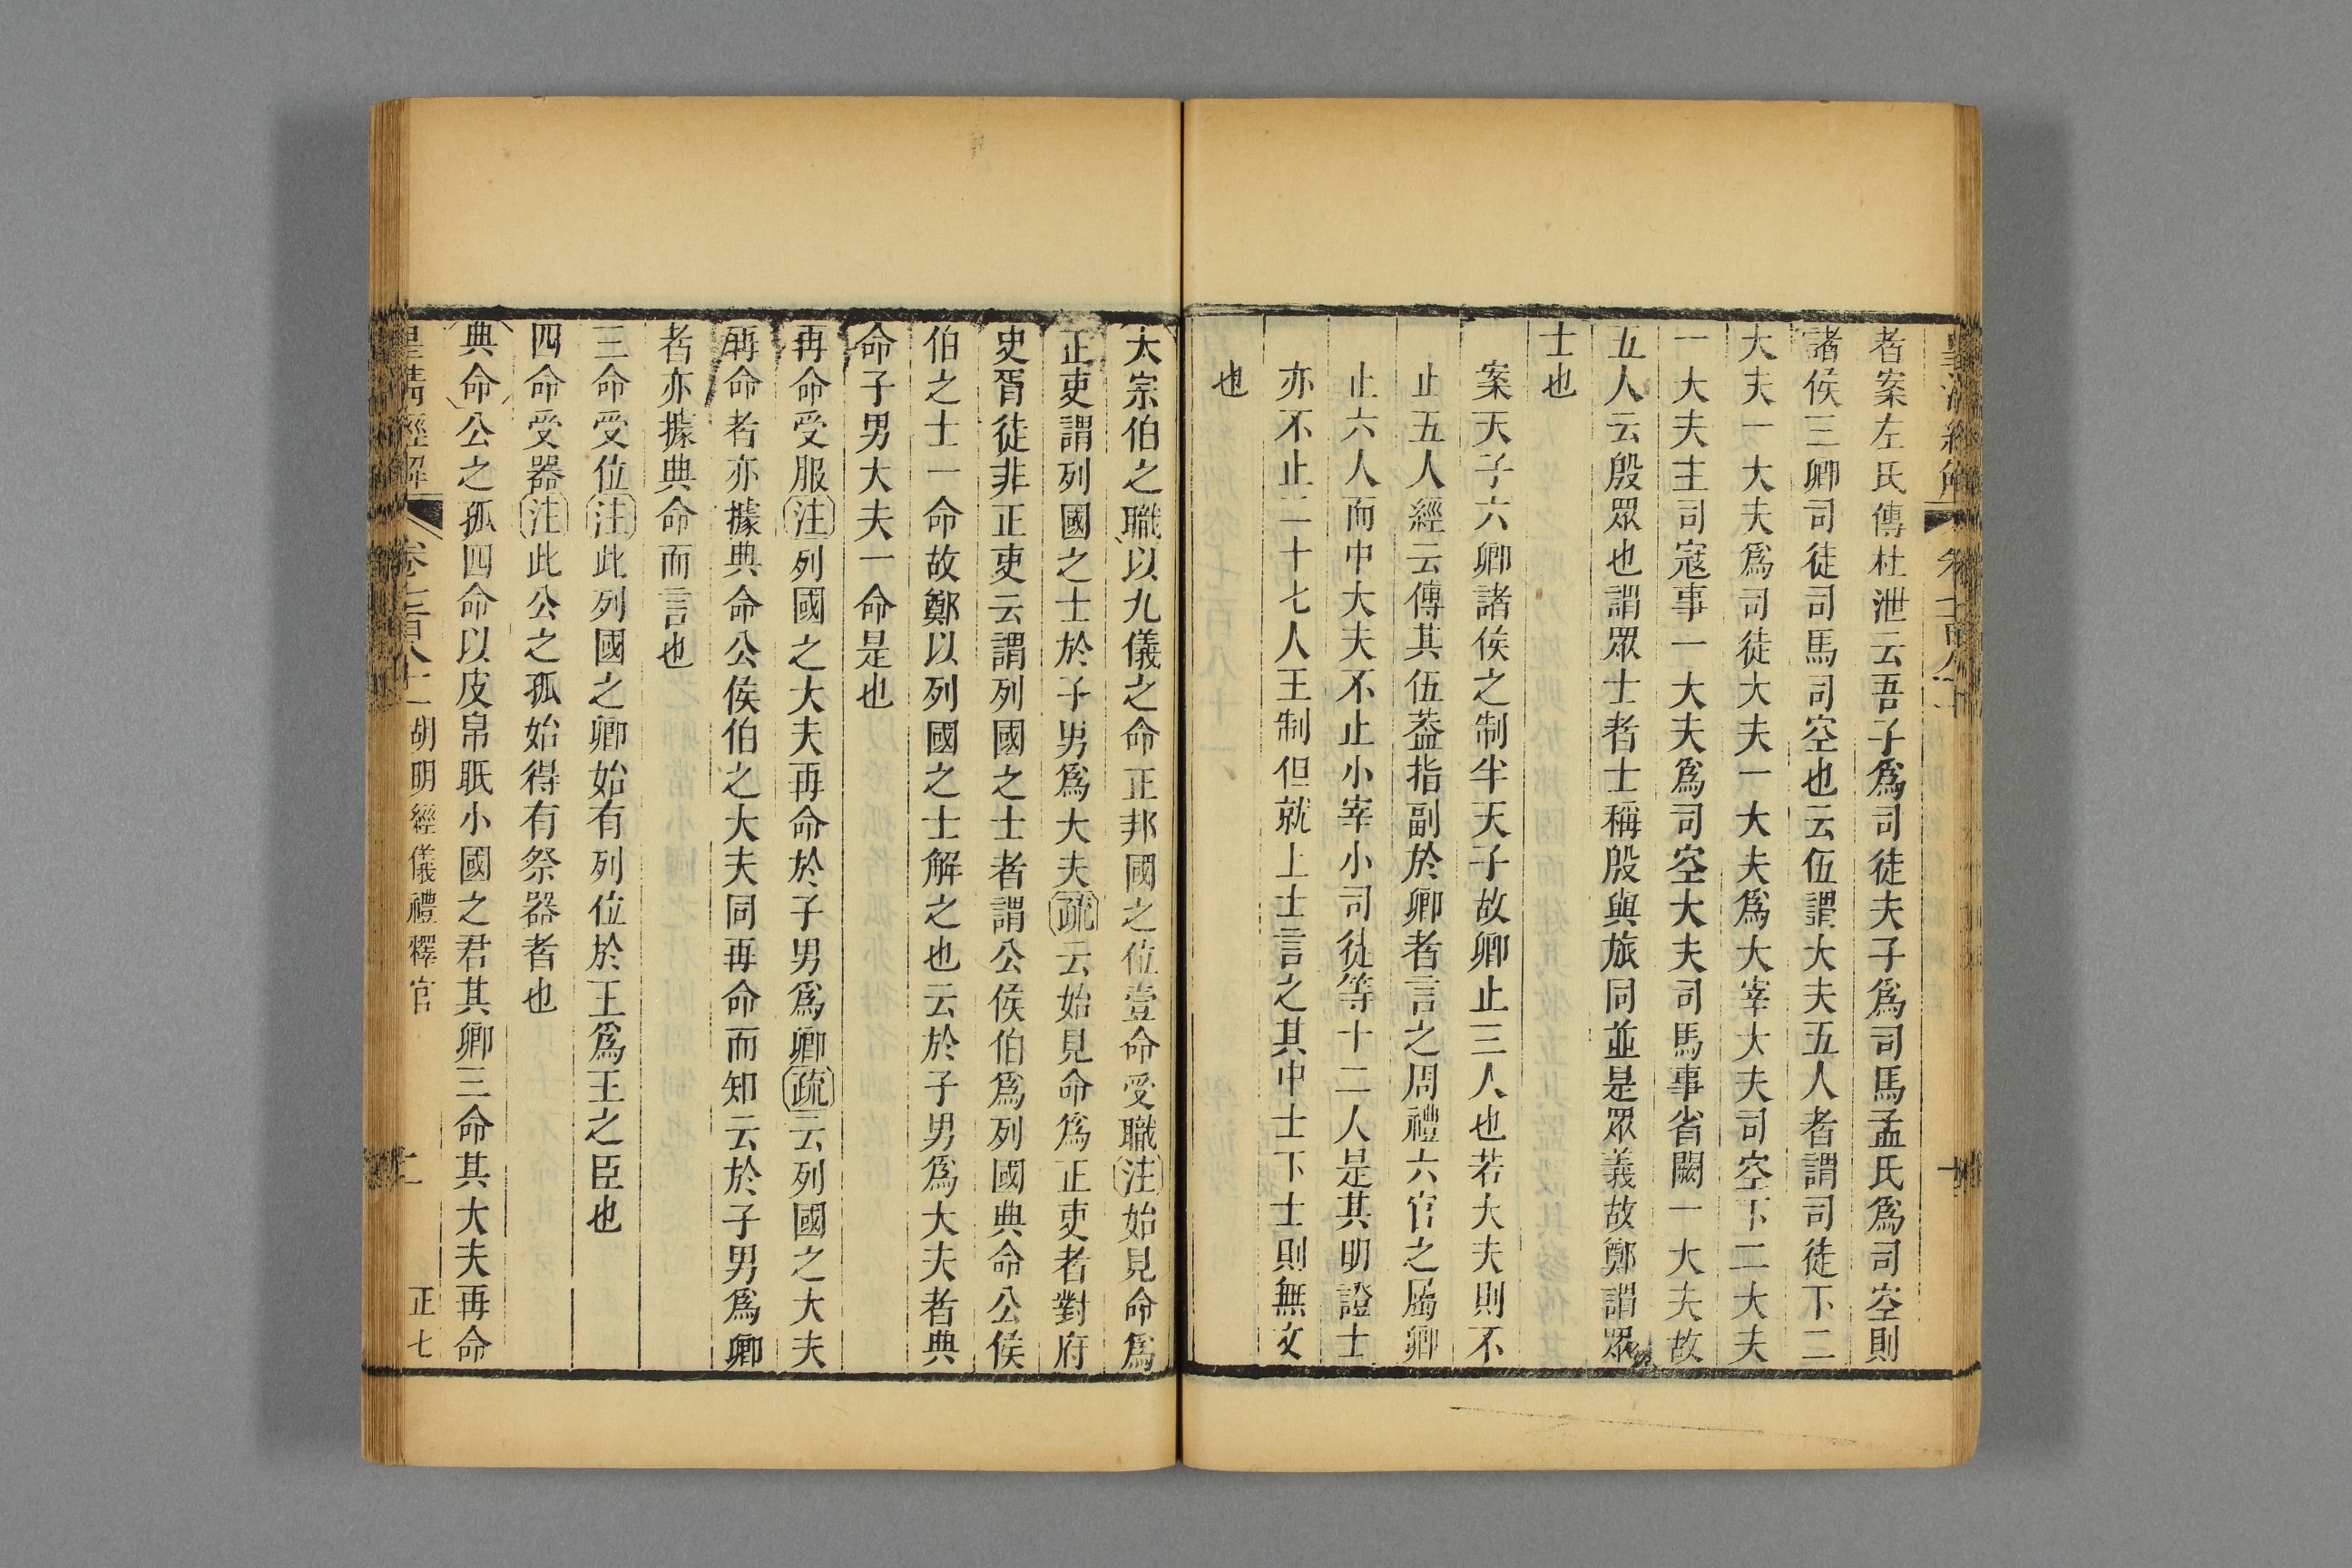 者案左氏傳杜泄云吾子爲司徒夫子爲司馬孟氏爲司空則
諸侯三卿司徒司馬司空也云伍謂大夫五人者謂司徒下二
大夫一大夫爲司徒大夫一大夫爲大宰大夫司空下二大夫
一大夫主司寇事一大夫爲司空大夫司馬事省闕一大夫故
五人云殷眾也謂眾士者士稱殷與旅同並是眾義故鄭謂眾
士也
案天子六卿諸侯之制半天子故卿止三人也若大夫則不
止五人經云傳其伍葢指副於卿者言之周禮六官之屬卿
止六人而中大夫不止小宰小司徒等十二人是其明證士
亦不止二十七人王制但就上士言之其中士下士則無文
也
大宗伯之職以九儀之命正邦國之位壹命受職注始見命爲
正吏謂列國之士於子男爲大夫疏云始見命爲正吏者對府
史胥徒非正吏云謂列國之士者謂公侯伯爲列國典命公侯
伯之士一命故鄭以列國之士解之也云於子男爲大夫者典
命子男大夫一命是也
再命受服注列國之大夫再命於子男爲卿疏云列國之大夫
再命者亦據典命公侯伯之大夫同再命而知云於子男爲卿
者亦據典命而言也
三命受位注此列國之卿始有列位於王爲王之臣也
四命受器注此公之孤始得有祭器者也
典命公之孤四命以皮帛眂小國之君其卿三命其大夫再命
皇清經解 卷七百八十一 胡明經儀禮釋官 二 正七